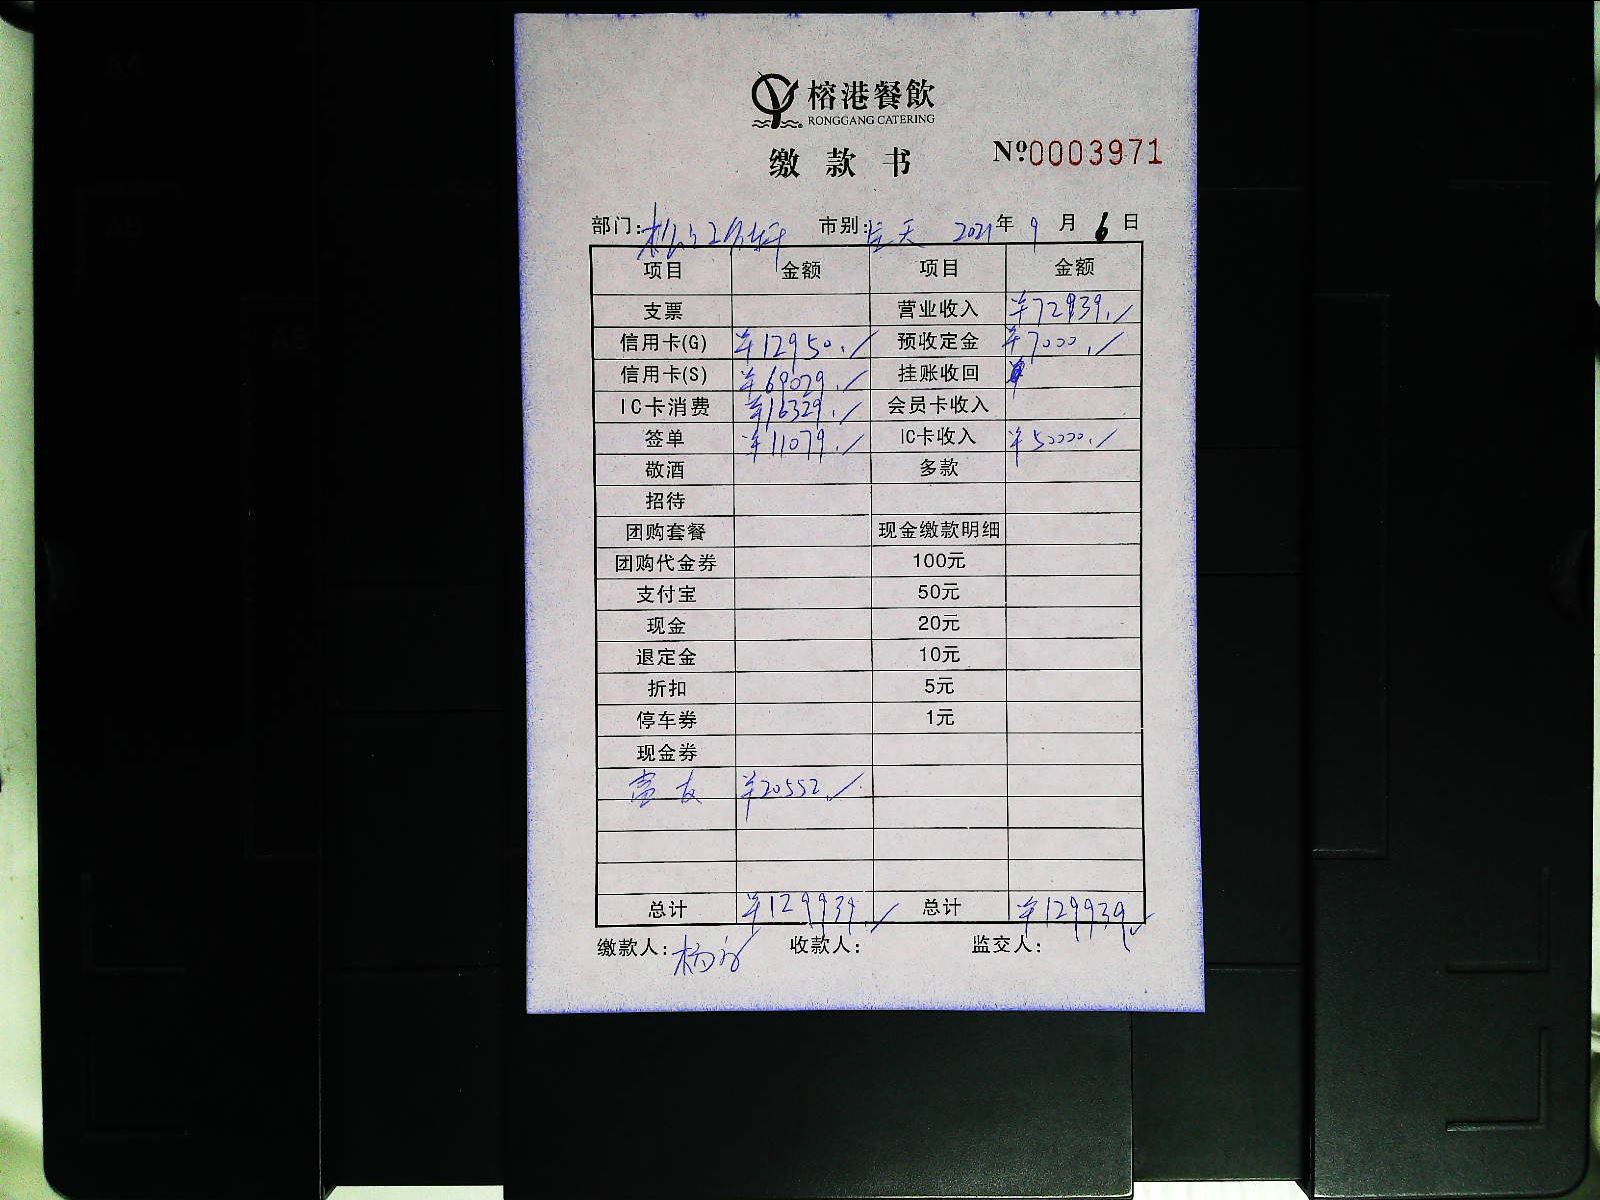 榕港餐飲
RONGGANG CATERING
缴款书
Nº0003971
部门: 市别:全天 2021年 9 月 6 日
项目 金额 项目 金额
支票 营业收入 ¥72939.
信用卡(G) ¥12950. 预收定金 ¥7000.
信用卡(S) ¥69029. 挂账收回
IC卡消费 ¥16329. 会员卡收入
签单 ¥11079. IC卡收入 ¥50000.
敬酒 多款
招待
团购套餐 现金缴款明细
团购代金券 100元
支付宝 50元
现金 20元
退定金 10元
折扣 5元
停车券 1元
现金券
¥20552.
总计 ¥129939. 总计 ¥129939.
缴款人: 收款人: 监交人:
A4
A5